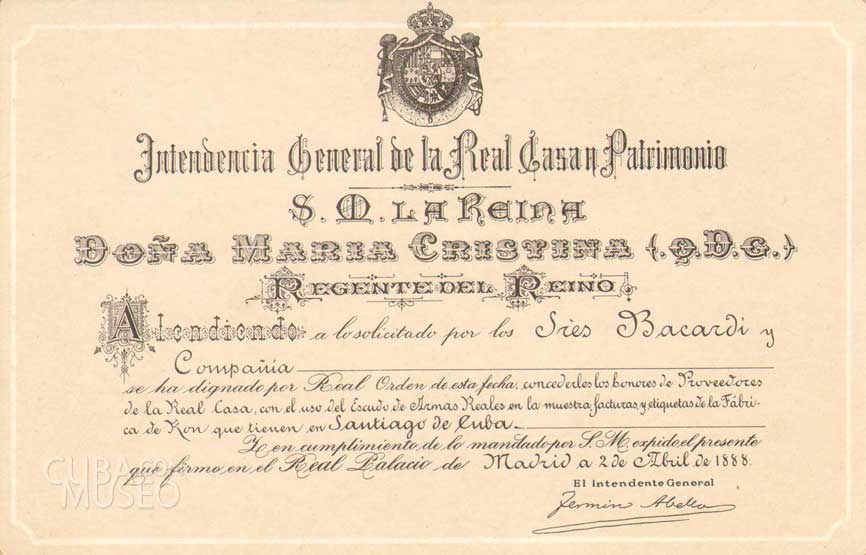 Intendencia General de la Real Casa y Patrimonio
S. M. LA REINA
DOÑA MARIA CRISTINA (.Q.D.G.)
REGENTE DEL REINO
Atendiendo a lo solicitado por los Srès Bacardi y
Compañia
se ha dignado por Real Orden de esta fecha, concederles los honores de Proveedores
de la Real Casa, con el uso del Escudo de Armas Reales en la muestra, facturas, y etiquetas de la Fábri-
ca de Ron que tienen en Santiago de Cuba.
Y en cumplimiento de lo mandado por S.M. expido el presente
que firmo en el Real Palacio de Madrid a 2 de Abril de 1888.
El Intendente General
Fermin Abella
CUBA
MUSEO